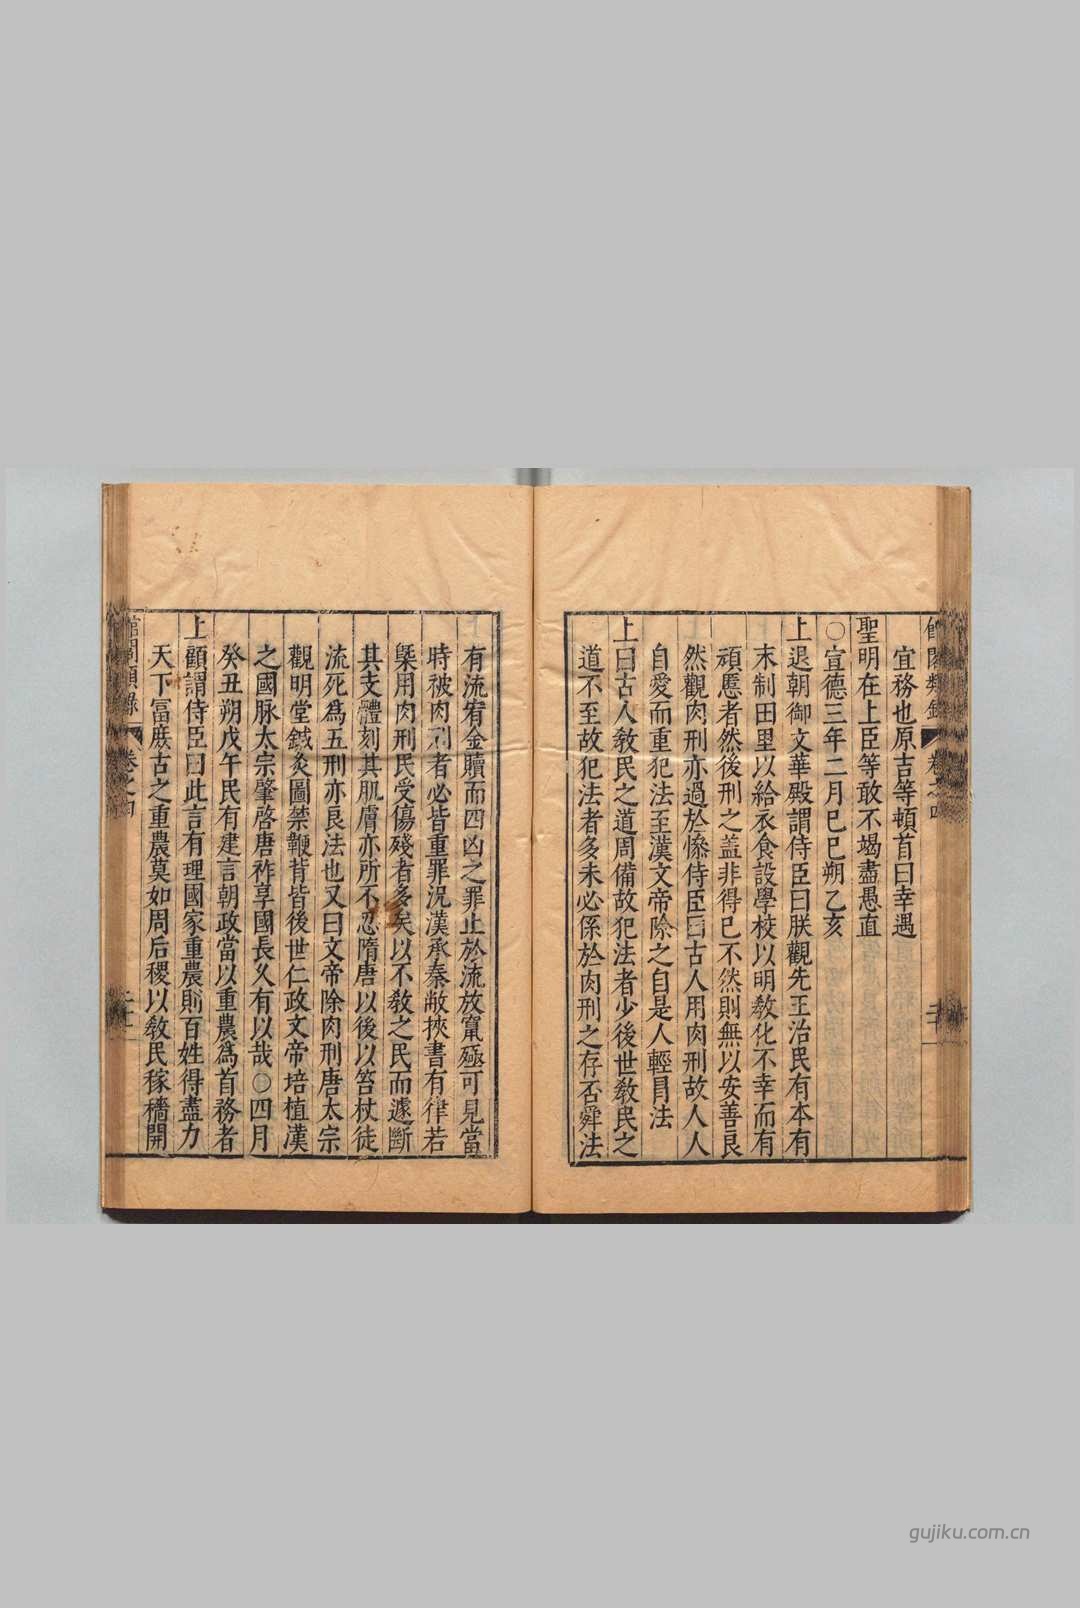 宜務也原吉等頓首曰幸遇
聖明在上臣等敢不竭盡愚直
○宣德三年二月己巳朔乙亥
上退朝御文華殿謂侍臣曰朕觀先王治民有本有
末制田里以給衣食設學校以明敎化不幸而有
頑慝者然後刑之蓋非得已不然則無以安善良
然觀肉刑亦過於慘侍臣曰古人用肉刑故人人
自愛而重犯法至漢文帝除之自是人輕冐法
上曰古人敎民之道周備故犯法者少後世敎民之
道不至故犯法者多未必係於肉刑之存否舜法
有流宥金贖而四凶之罪止於流放竄殛可見當
時被肉刑者必皆重罪況漢承秦敝挾書有律若
槩用肉刑民受傷殘者多矣以不敎之民而遽斷
其支體刻其肌膚亦所不忍隋唐以後以笞杖徒
流死爲五刑亦良法也又曰文帝除肉刑唐太宗
觀明堂鍼灸圖禁鞭背皆後世仁政文帝培植漢
之國脉太宗肇啓唐祚享國長久有以哉○四月
癸丑朔戊午民有建言朝政當以重農爲首務者
上顧謂侍臣曰此言有理國家重農則百姓得盡力
天下富庶古之重農莫如周后稷以敎民稼穡開
館閣類錄
卷之四
gujiku.com.cn